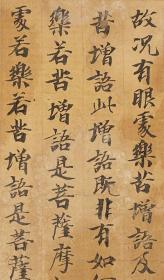 故況有眼處樂苦增語及
苦增語此增語既非有如何
樂若苦增語是菩薩摩
處若樂若苦增語是菩薩